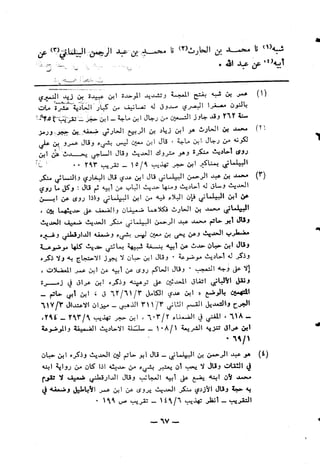 شبه(١) نا محمد بن الحارث(٢) نا محمد بن عبد الرحمن البيلماني(٣) عن
أبيه(٤) عن عبد الله .
(١) عمر بن شبه بفتح المعجمة وتشديد الموحدة ابن عبيدة بن زيد النميري
بالنون مصغرا البصري صدوق له تصانيف من كبار الحادية عشرة مات
سنة ٢٦٢ وقد جاوز التسعين من رجال ابن ماجة - ابن حجر -
(٢) محمد بن الحارث هو ابن زياد بن الربيع الحارثي ضعفه بن حجر ورمز
لكونه من رجال ابن ماجة . قال ابن معين ليس بشيء وقال عمرو بن علي
روى أحاديث منكرة وهو متروك الحديث وقال الساجي يحدث عن ابن
البيلماني بمناكير ابن حجر تهذيب ١٠٥/٩ - تقريب ٢٩٣ .
(٣) محمد بن عبد الرحمن البيلماني قال ابن عدي قال البخاري والنسائي منكر
الحديث وساق له أحاديث ومنها حديث الباب عن أبيه ثم قال : وكل ما روى
عن ابن البيلماني فإن البلاء فيه من ابن البيلماني وإذا روى عن ابن
البيلماني محمد بن الحارث فكلاهما ضعيفان والضعف على حديثهما بين ،
وقال أبو حاتم محمد عبد الرحمن البيلماني منكر الحديث ضعيف الحديث
مضطرب الحديث وعن يحيى بن معين ليس بشيء وضعفه الدارقطني وغيره
وقال ابن حبان حدث عن أبيه بنسخة شبيها بمائتي حديث كلها موضوعة
وذكر له أحاديث موضوعة . وقال ابن حبان لا يجوز الاحتجاج به ولا ذكره
إلا على وجه التعجب . وقال الحاكم روى عن أبيه عن ابن عمر المعضلات ،
ونقل الألباني اتفاق المحدثين على توهينه وذكره ابن عراق في زمرة
المتهمين بالوضع ، ابن عدي الكامل ٦٢/٦١/٣ أ ، ابن أبي حاتم -
الجرح والتعديل القسم الثاني ٣١١/٣ الذهبي - ميزان الاعتدال ٦١٧/٣
- ٦١٨ . المغني في الضعفاء ٦٠٣/٢ . ابن حجر تهذيب ٢٩٣/٩ - ٢٩٤ ،
ابن عراق تنزيه الشريعة ١٠٨/١ - سلسلة الأحاديث الضعيفة والموضوعة
٦٩/١ .
(٤) هو عبد الرحمن بن البيلماني - قال أبو حاتم لين الحديث وذكره ابن حبان
في الثقات وقال لا يجب أن يعتبر بشيء من حديثه إذا كان من رواية ابنه
محمد لأن ابنه يضع على أبيه العجائب وقال الدارقطني ضعيف لا تقوم
به حجة وقال الأزدي منكر الحديث يروي عن ابن عمر الأباطيل وضعفه في
التقريب - أنظر تهذيب ١٤٩/٦ - تقريب ص ١٩٩ .
- ٦٧ -